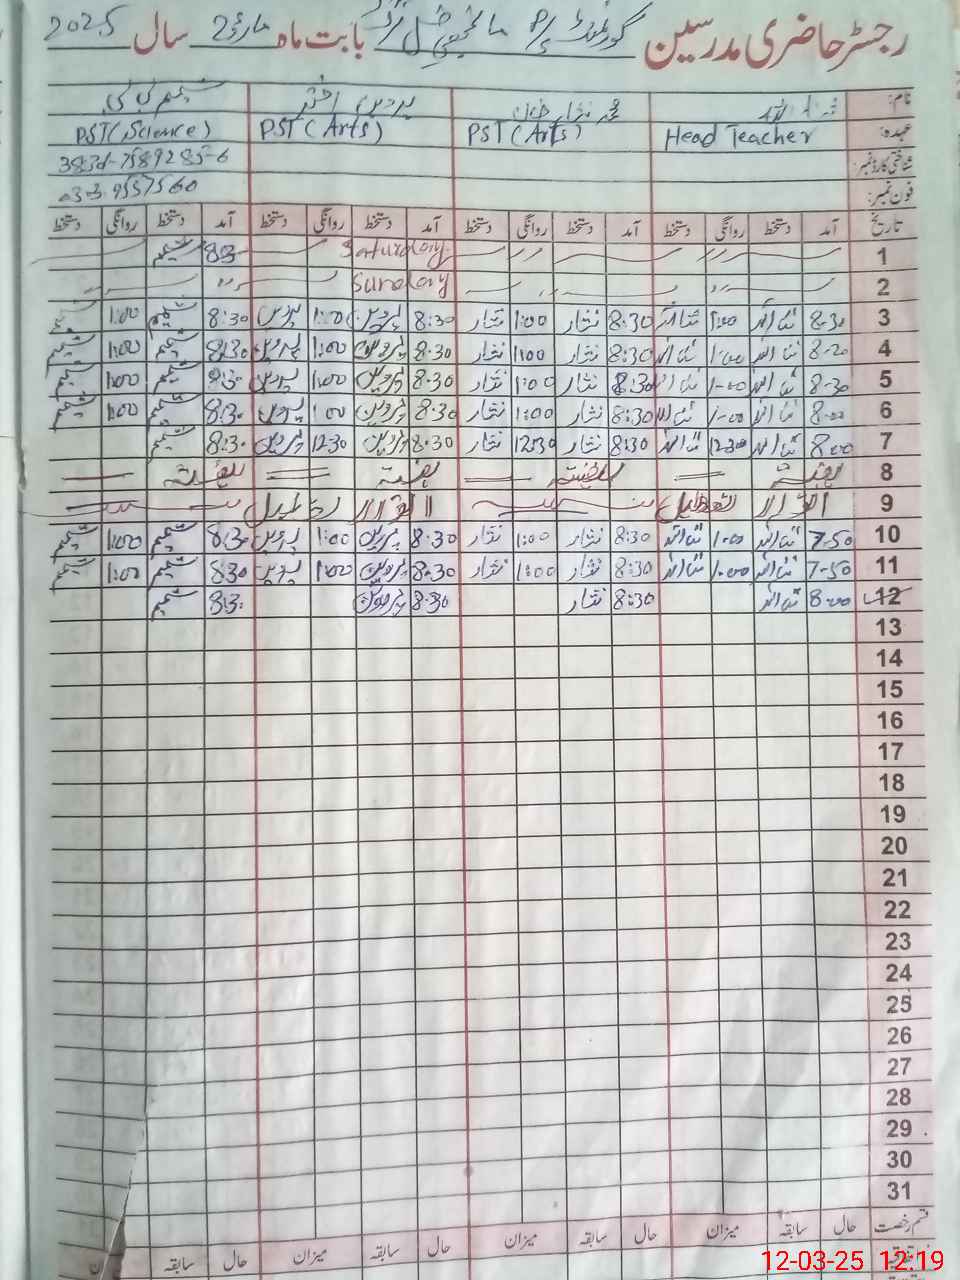 رجسٹر حاضری مدرسین گورنمنٹ P/ بابت ماہ مارچ سال 2025
نام: ثناء اللہ محمد نثار خان پروین اختر شمیم بی بی
عہدہ: Head Teacher PST (Arts) PST (Arts) PST (Science)
شناختی کارڈ نمبر:
فون نمبر:
تاریخ آمد دستخط روانگی دستخط آمد دستخط روانگی دستخط آمد دستخط روانگی دستخط آمد دستخط روانگی دستخط
1 Saturday شمیم
2 Sunday
3 8-30 ثناءاللہ 1-00 ثناءاللہ 8:30 نثار 1:00 نثار 8:30 پروین 1:00 پروین 8:30 شمیم 1:00 شمیم
4 ثناءاللہ 1-00 ثناءاللہ 8:30 نثار 1:00 نثار 8.30 پروین 1:00 پروین 8:30 شمیم 1:00 شمیم
5 8-30 ثناءاللہ 1-00 ثناءاللہ 8:30 نثار 1:00 نثار 8.30 پروین 1:00 پروین شمیم 1:00 شمیم
6 8-00 ثناءاللہ 1-00 ثناءاللہ 8:30 نثار 1:00 نثار 8.30 پروین 1 00 پروین 8:30 شمیم 1:00 شمیم
7 8-00 ثناءاللہ 12-30 ثناءاللہ 8:30 نثار 12:30 نثار 8.30 پروین 12:30 پروین 8:30 شمیم
8 ہفتہ ہفتہ ہفتہ ہفتہ
9 اتوار تعطیل اتوار تعطیل
10 7-50 ثناءاللہ 1-00 ثناءاللہ 8:30 نثار 1:00 نثار 8.30 پروین 1:00 پروین 8:30 شمیم 1:00 شمیم
11 7-50 ثناءاللہ 1-00 ثناءاللہ 8:30 نثار 1:00 نثار 8.30 پروین 1:00 پروین 8:30 شمیم 1:00 شمیم
12 8-00 ثناءاللہ 8:30 نثار 8.30 پروین 8:30 شمیم
13
14
15
16
17
18
19
20
21
22
23
24
25
26
27
28
29
30
31
قسم رخصت حال سابقہ میزان حال سابقہ میزان حال سابقہ میزان حال سابقہ
12-03-25 12:19